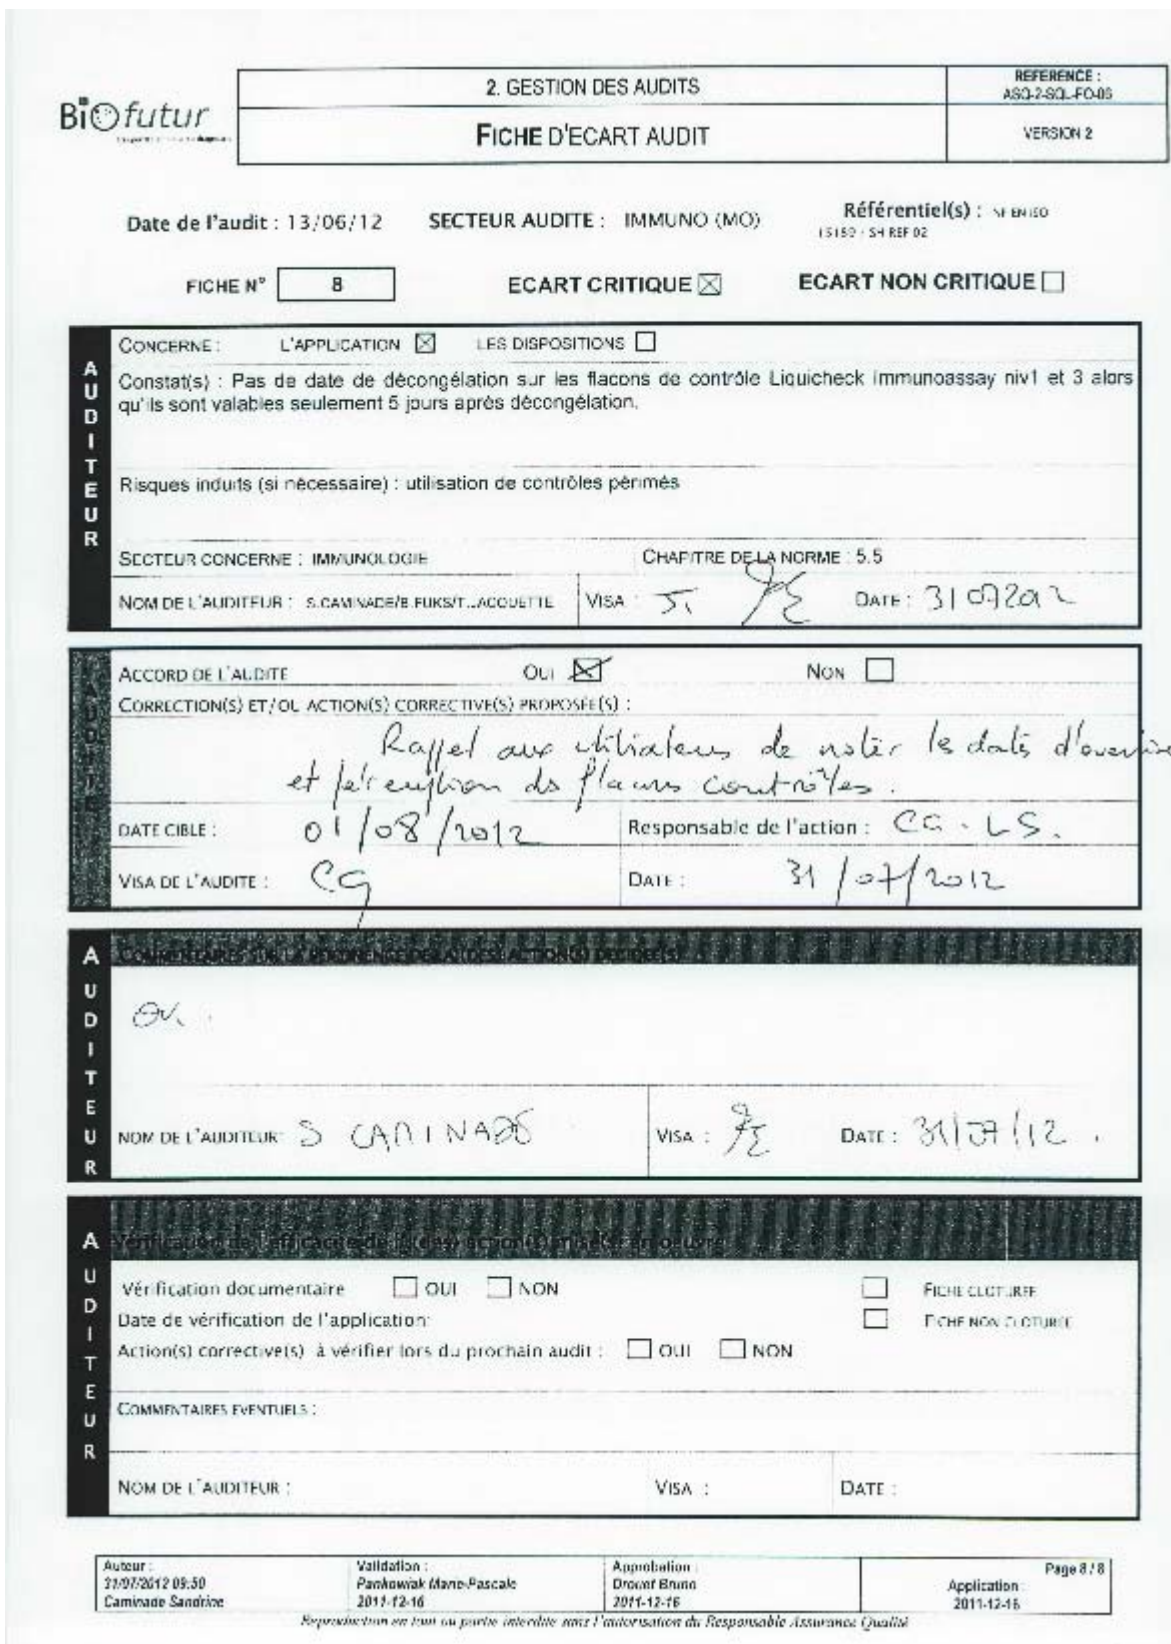 Biofutur
2. GESTION DES AUDITS
REFERENCE :
ASQ-2-SQL-FO-06
FICHE D'ECART AUDIT
VERSION 2
Date de l'audit : 13/06/12 SECTEUR AUDITE : IMMUNO (MO) Référentiel(s) : NF EN ISO
15189 - SH REF 02
FICHE N° 8 ECART CRITIQUE ☒ ECART NON CRITIQUE ☐
AUDITEUR
CONCERNE : L'APPLICATION ☒ LES DISPOSITIONS ☐
Constat(s) : Pas de date de décongélation sur les flacons de contrôle Liquicheck Immunoassay niv1 et 3 alors
qu'ils sont valables seulement 5 jours après décongélation.
Risques induits (si nécessaire) : utilisation de contrôles périmés
SECTEUR CONCERNE : IMMUNOLOGIE CHAPITRE DE LA NORME : 5.5
NOM DE L'AUDITEUR : S.CAMINADE/B.FUKS/T. VISA : DATE : 31072012
AUDITE
ACCORD DE L'AUDITE OUI ☒ NON ☐
CORRECTION(S) ET/OU ACTION(S) CORRECTIVE(S) PROPOSÉE(S) :
Rappel aux utilisateurs de noter les dates d'ouverture
et péremption des flacons contrôles.
DATE CIBLE : 01/08/2012 Responsable de l'action : CG - LS.
VISA DE L'AUDITE : CG DATE : 31/07/2012
AUDITEUR
COMMENTAIRES SUR LA PERTINENCE DE LA (DES) ACTION(S) DECIDEE(S)
OK.
NOM DE L'AUDITEUR: S CAMINADE VISA : DATE : 31/07/12.
AUDITEUR
Vérification de l'efficacité de la (des) action(s) mise(s) en oeuvre
Vérification documentaire ☐ OUI ☐ NON ☐ FICHE CLOTUREE
Date de vérification de l'application: ☐ FICHE NON CLOTUREE
Action(s) corrective(s) à vérifier lors du prochain audit : ☐ OUI ☐ NON
COMMENTAIRES EVENTUELS :
NOM DE L'AUDITEUR : VISA : DATE :
Auteur : Validation : Approbation : Page 8 / 8
31/07/2012 09:50 Pankowiak Marie-Pascale Drouet Bruno Application :
Caminade Sandrine 2011-12-16 2011-12-16 2011-12-16
Reproduction en tout ou partie interdite sans l'autorisation du Responsable Assurance Qualité